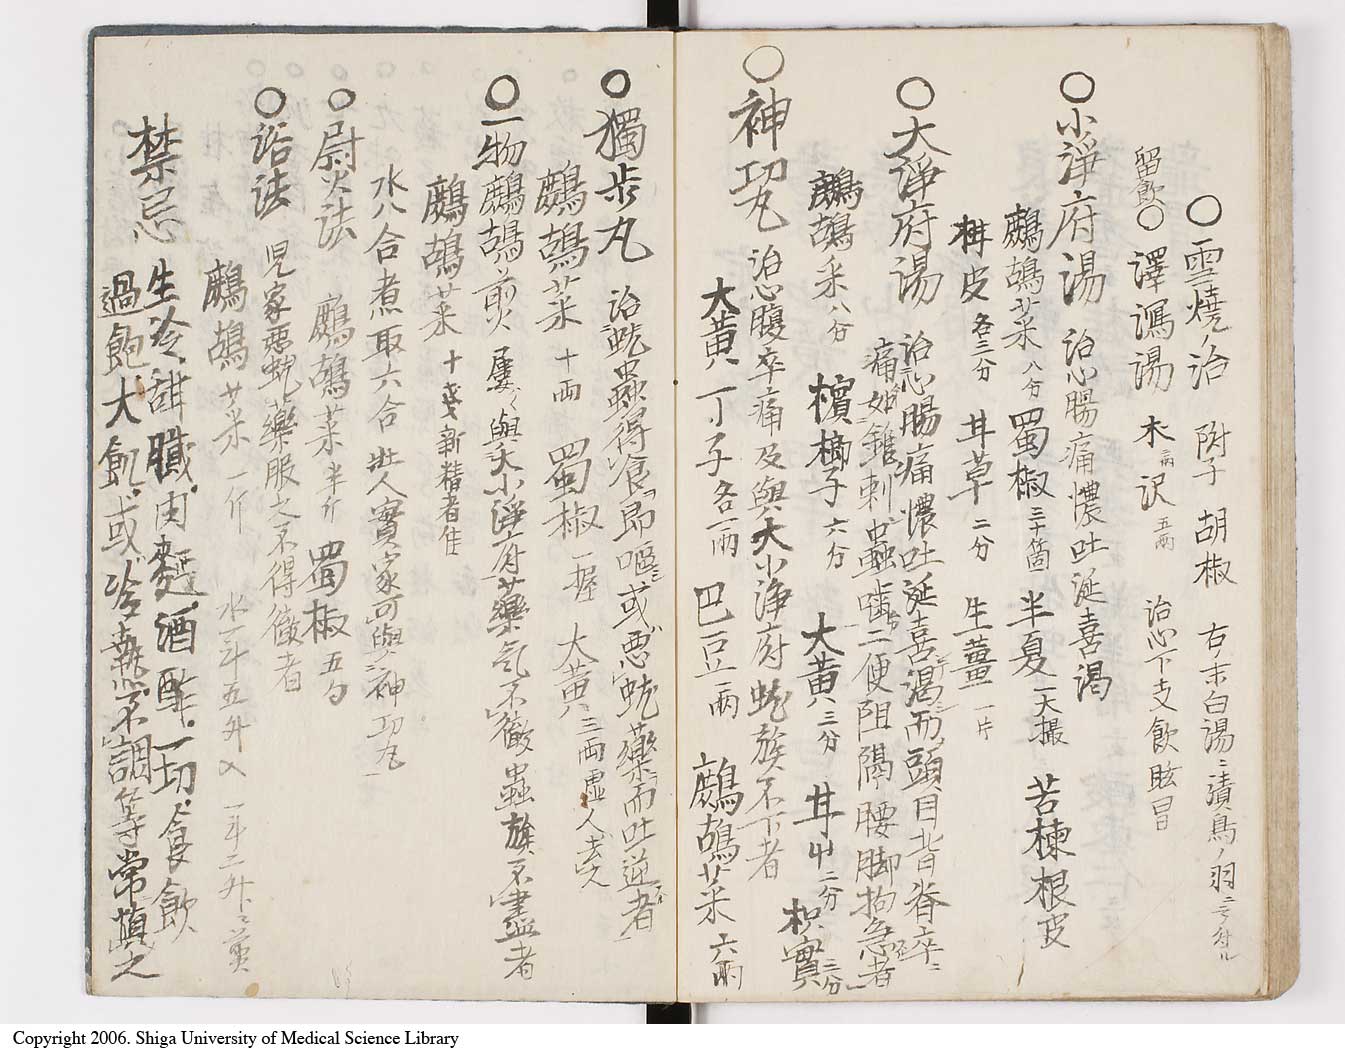 ○雪燒ノ治 附子 胡椒 右末白湯ニ漬鳥ノ羽ニテ付ル
留飲○澤瀉湯 木 二両 沢 五両 治心下支飲眩冒
○小淨府湯 治心腸痛憹吐涎喜渇
鷓鴣菜 八分 蜀椒 三十箇 半夏 一大撮 苦楝根皮
柑皮 各三分 甘草 二分 生薑 一片
○大淨府湯 治心腸痛憹吐涎喜渇而頭目背脊碎ニ
痛如錐刺蟲嚙二便阻隔腰脚拘急者
鷓鴣采 八分 檳榔子 六分 大黄 三分 甘中 二分 枳實 三分
○神功丸 治心腹卒痛及與大小浄府蚘族不下者
大黄 丁子 各一両 巴豆 一両 鷓鴣菜 六両
○獨步丸 治蚘蟲得食即嘔或悪蚘藥而吐逆者
鷓鴣菜 十両 蜀椒 一握 大黄 三両虚人去之
○一物鷓鴣煎 屢與大小淨府藥気不徹蟲族不盡者
鷓鴣菜 十戔新精者佳
水八合煮取六合 壯人實家可與神功丸
○尉火法 鷓鴣菜 半斤 蜀椒 五勺
○浴法 児家悪蚘藥服之不得徹者
鷓鴣菜 一斤 水一斗五升入一斗二升ニ煎
禁忌 生冷甜膱肉麪酒酢一切食飲
過飽大飢或冷熱不調等常慎之